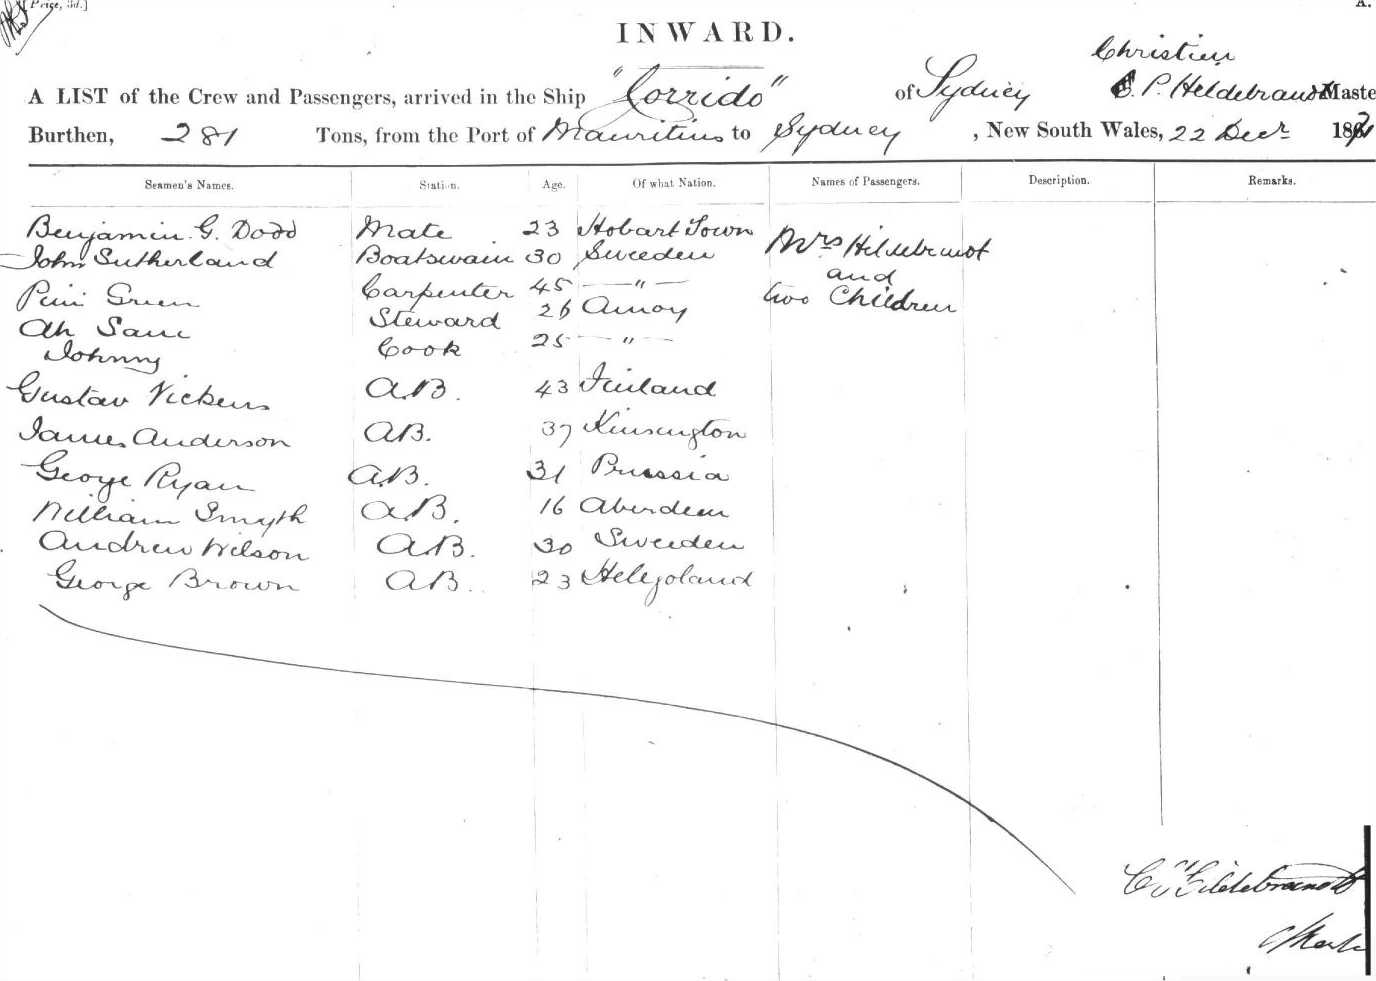 [Price, 3d.]
A.
INWARD.
Christien
A LIST of the Crew and Passengers, arrived in the Ship "Corrido" of Sydney C. P. Hildebrandt Maste
Burthen, 281 Tons, from the Port of Mauritius to Sydney , New South Wales, 22 Decr 187
Seamen's Names. Station. Age. Of what Nation. Names of Passengers. Description. Remarks.
Benjamin G. Dodd Mate 23 Hobart Town Mrs Hildebrandt
John Sutherland Boatswain 30 Sweeden and
Pini Green Carpenter 45 — " — two Children
Ah Sam Steward 26 Amoy
Johnny Cook 25 — " —
Gustav Vickens A.B. 43 Finland
James Anderson AB. 37 Kinsington
George Ryan A.B. 31 Prussia
William Smyth A.B. 16 Aberdeen
Andrew Wilson A.B. 30 Sweeden
George Brown AB. 23 Helegoland
Hildebrandt